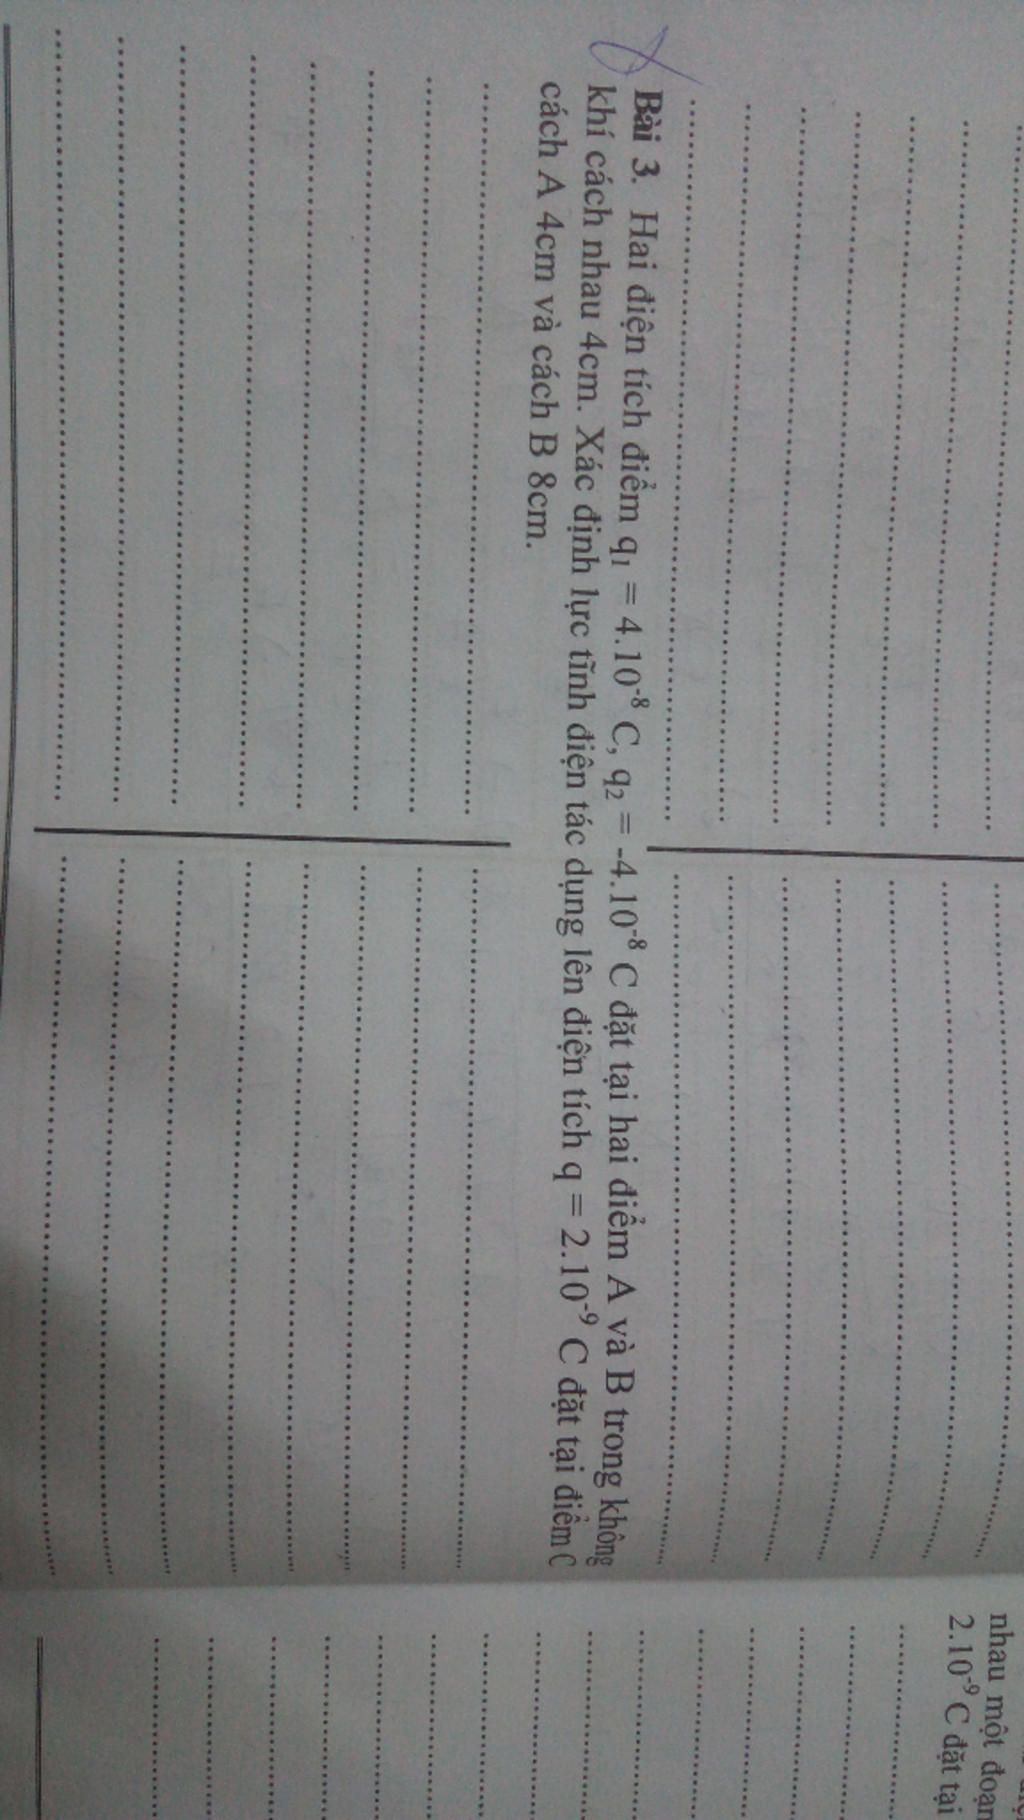 Bài 3. Hai điện tích điểm q₁ = 4.10⁻⁸ C, q₂ = -4.10⁻⁸ C đặt tại hai điểm A và B trong không
khí cách nhau 4cm. Xác định lực tĩnh điện tác dụng lên điện tích q = 2.10⁻⁹ C đặt tại điểm C
cách A 4cm và cách B 8cm.
nhau một đoạn
2.10⁻⁹C đặt tại